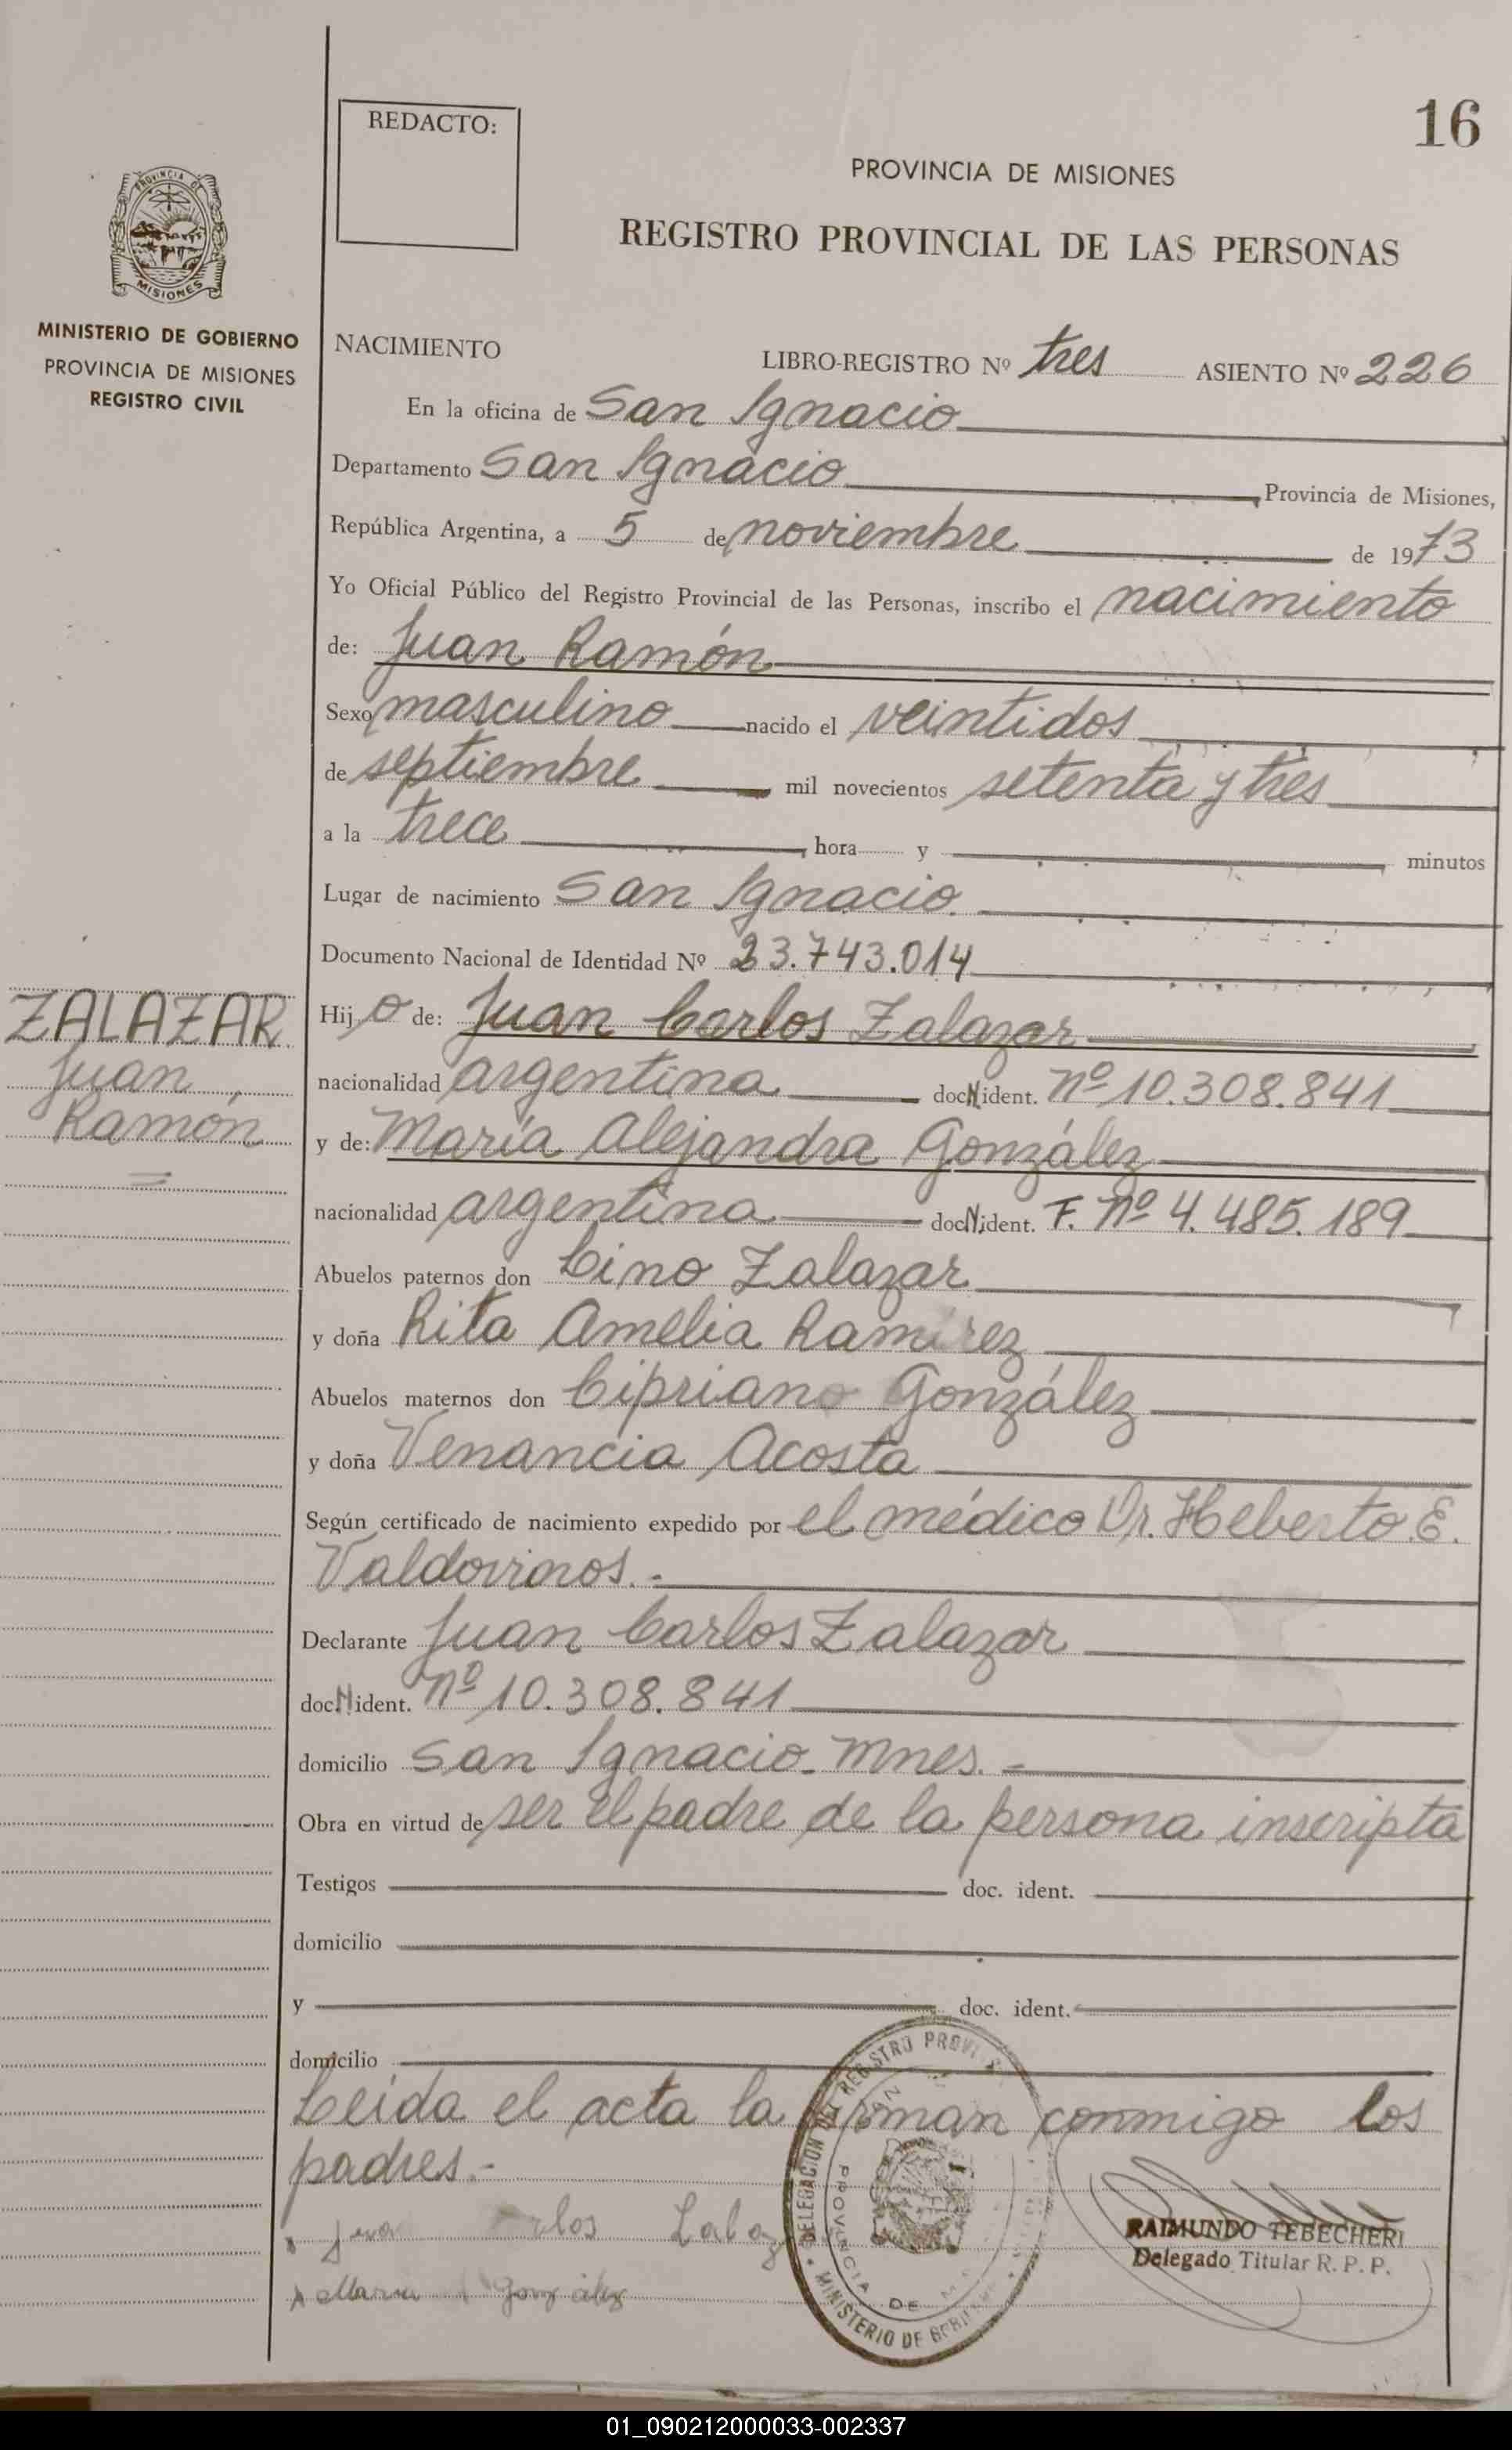 16
REDACTO:
PROVINCIA DE MISIONES
REGISTRO PROVINCIAL DE LAS PERSONAS
PROVINCIA DE
MISIONES
MINISTERIO DE GOBIERNO
PROVINCIA DE MISIONES
REGISTRO CIVIL
NACIMIENTO LIBRO-REGISTRO Nº tres ASIENTO Nº 226
En la oficina de San Ignacio
Departamento San Ignacio, Provincia de Misiones,
República Argentina, a 5 de noviembre de 1973
Yo Oficial Público del Registro Provincial de las Personas, inscribo el nacimiento
de: Juan Ramón
Sexo masculino nacido el veintidos
de septiembre mil novecientos setenta y tres
a la trece, hora y minutos
Lugar de nacimiento San Ignacio.
Documento Nacional de Identidad Nº 23.743.014
ZALAZAR
Juan
Ramón
Hijo de: Juan Carlos Zalazar
nacionalidad argentina doc. N. ident. nº 10.308.841
y de: María Alejandra González
nacionalidad argentina doc. N. ident. F. nº 4.485.189
Abuelos paternos don Cino Zalazar
y doña Rita Amelia Ramírez
Abuelos maternos don Cipriano González
y doña Venancia Acosta
Según certificado de nacimiento expedido por el médico Dr. Heberto E.
Valdovinos.-
Declarante Juan Carlos Zalazar
doc. N. ident. nº 10.308.841
domicilio San Ignacio - Mnes.-
Obra en virtud de ser el padre de la persona inscripta
Testigos doc. ident.
domicilio
y doc. ident.
domicilio
Leída el acta la firman conmigo los
padres.-
DELEGACION DEL REGISTRO PROVI
PROVINCIA DE
MINISTERIO DE GOBIERNO
Maria González
RAIMUNDO TEBECHERI
Delegado Titular R. P. P.
01_090212000033-002337